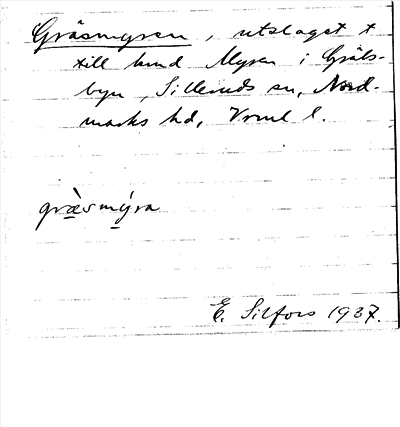 Gräsmyren, utslaget t
till hmd Myren i Gräls-
byn, Silleruds sn, Nord-
marks hd, Vrml l.
grä̀smýra
E. Silfors 1937.